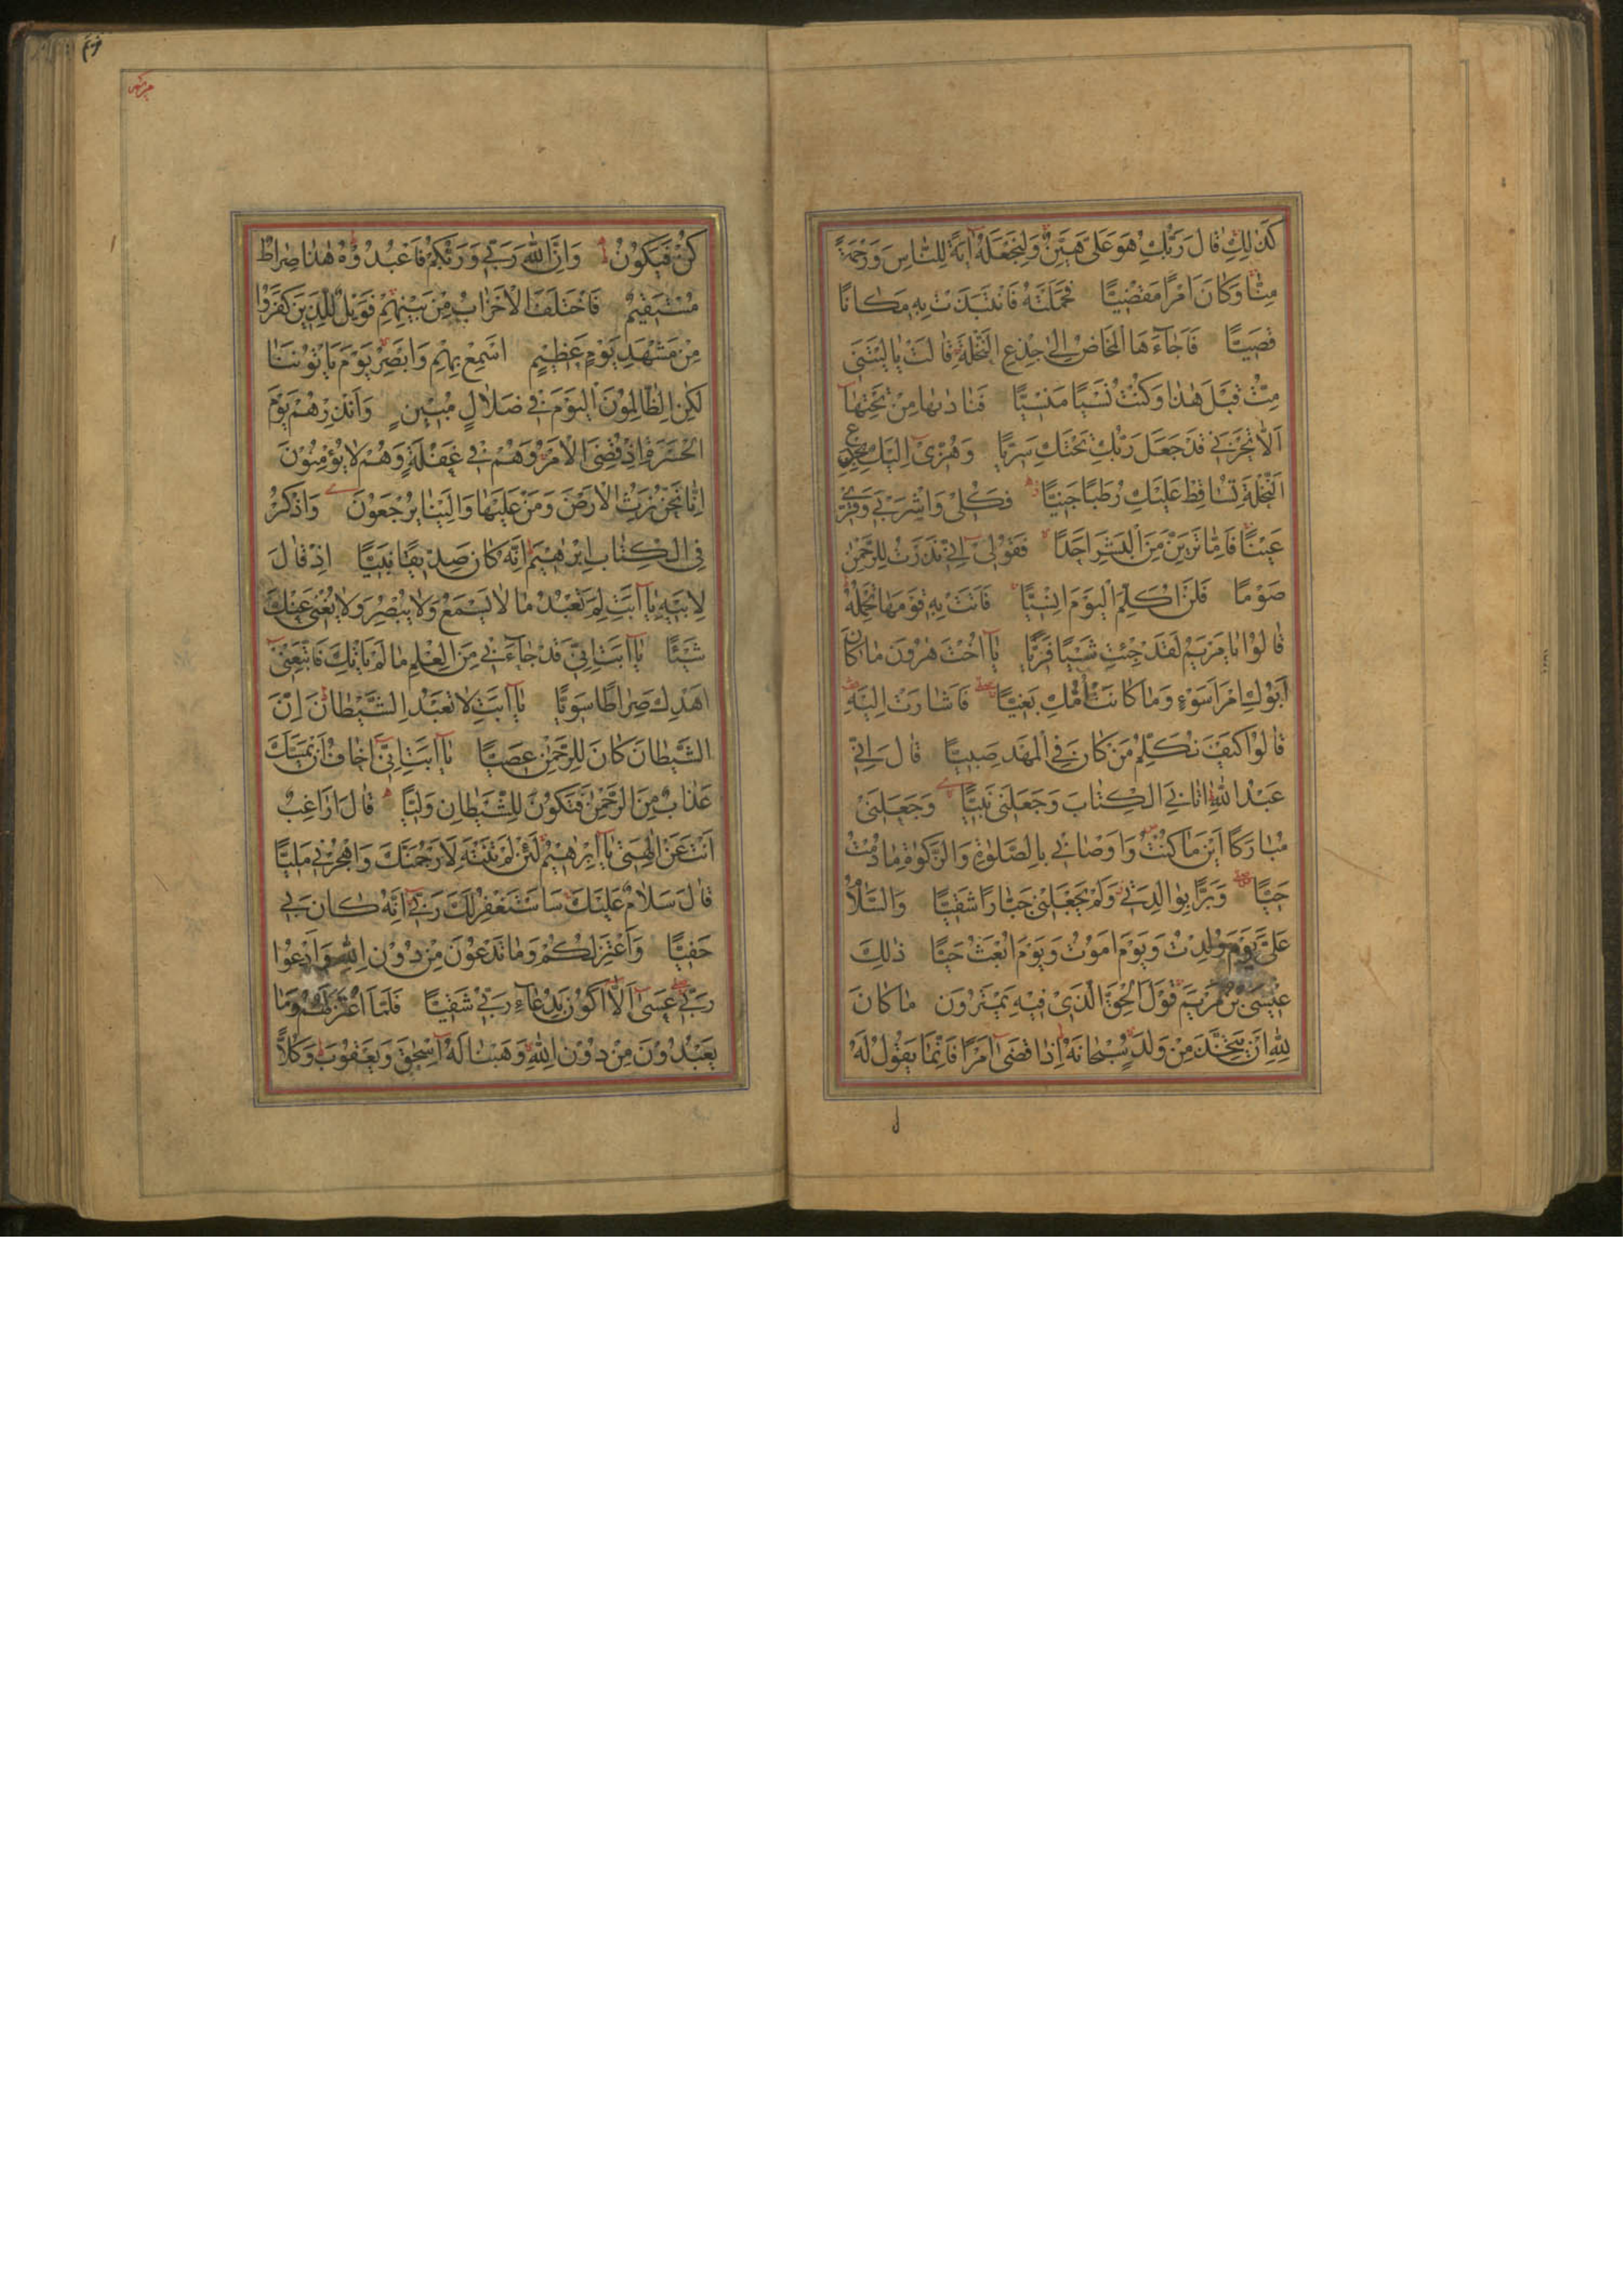 كَذٰلِكِ قَالَ رَبُّكِ هُوَ عَلَيَّ هَيِّنٌ وَلِنَجْعَلَهُ اٰيَةً لِلنَّاسِ وَرَحْمَةً
مِنَّا وَكَانَ اَمْرًا مَقْضِيًّا فَحَمَلَتْهُ فَانْتَبَذَتْ بِهِ مَكَانًا
قَصِيًّا فَاَجَاءَهَا الْمَخَاضُ اِلٰى جِذْعِ النَّخْلَةِ قَالَتْ يَا لَيْتَنِي
مِتُّ قَبْلَ هٰذَا وَكُنْتُ نَسْيًا مَنْسِيًّا فَنَادٰىهَا مِنْ تَحْتِهَا
اَلَّا تَحْزَنِي قَدْ جَعَلَ رَبُّكِ تَحْتَكِ سَرِيًّا وَهُزِّي اِلَيْكِ بِجِذْعِ
النَّخْلَةِ تُسَاقِطْ عَلَيْكِ رُطَبًا جَنِيًّا فَكُلِي وَاشْرَبِي وَقَرِّي
عَيْنًا فَاِمَّا تَرَيِنَّ مِنَ الْبَشَرِ اَحَدًا فَقُولِي اِنِّي نَذَرْتُ لِلرَّحْمٰنِ
صَوْمًا فَلَنْ اُكَلِّمَ الْيَوْمَ اِنْسِيًّا فَاَتَتْ بِهِ قَوْمَهَا تَحْمِلُهُ
قَالُوا يَا مَرْيَمُ لَقَدْ جِئْتِ شَيْئًا فَرِيًّا يَا اُخْتَ هٰرُونَ مَا كَانَ
اَبُوكِ امْرَاَ سَوْءٍ وَمَا كَانَتْ اُمُّكِ بَغِيًّا فَاَشَارَتْ اِلَيْهِ
قَالُوا كَيْفَ نُكَلِّمُ مَنْ كَانَ فِي الْمَهْدِ صَبِيًّا قَالَ اِنِّي
عَبْدُ اللّٰهِ اٰتَانِيَ الْكِتَابَ وَجَعَلَنِي نَبِيًّا وَجَعَلَنِي
مُبَارَكًا اَيْنَ مَا كُنْتُ وَاَوْصَانِي بِالصَّلٰوةِ وَالزَّكٰوةِ مَا دُمْتُ
حَيًّا وَبَرًّا بِوَالِدَتِي وَلَمْ يَجْعَلْنِي جَبَّارًا شَقِيًّا وَالسَّلَامُ
عَلَيَّ يَوْمَ وُلِدْتُ وَيَوْمَ اَمُوتُ وَيَوْمَ اُبْعَثُ حَيًّا ذٰلِكَ
عِيسَى بْنُ مَرْيَمَ قَوْلَ الْحَقِّ الَّذِي فِيهِ يَمْتَرُونَ مَا كَانَ
لِلّٰهِ اَنْ يَتَّخِذَ مِنْ وَلَدٍ سُبْحَانَهُ اِذَا قَضٰى اَمْرًا فَاِنَّمَا يَقُولُ لَهُ
كُنْ فَيَكُونُ وَاِنَّ اللّٰهَ رَبِّي وَرَبُّكُمْ فَاعْبُدُوهُ هٰذَا صِرَاطٌ
مُسْتَقِيمٌ فَاخْتَلَفَ الْاَحْزَابُ مِنْ بَيْنِهِمْ فَوَيْلٌ لِلَّذِينَ كَفَرُوا
مِنْ مَشْهَدِ يَوْمٍ عَظِيمٍ اَسْمِعْ بِهِمْ وَاَبْصِرْ يَوْمَ يَاْتُونَنَا
لٰكِنِ الظَّالِمُونَ الْيَوْمَ فِي ضَلَالٍ مُبِينٍ وَاَنْذِرْهُمْ يَوْمَ
الْحَسْرَةِ اِذْ قُضِيَ الْاَمْرُ وَهُمْ فِي غَفْلَةٍ وَهُمْ لَا يُؤْمِنُونَ
اِنَّا نَحْنُ نَرِثُ الْاَرْضَ وَمَنْ عَلَيْهَا وَاِلَيْنَا يُرْجَعُونَ وَاذْكُرْ
فِي الْكِتَابِ اِبْرٰهِيمَ اِنَّهُ كَانَ صِدِّيقًا نَبِيًّا اِذْ قَالَ
لِاَبِيهِ يَا اَبَتِ لِمَ تَعْبُدُ مَا لَا يَسْمَعُ وَلَا يُبْصِرُ وَلَا يُغْنِي عَنْكَ
شَيْئًا يَا اَبَتِ اِنِّي قَدْ جَاءَنِي مِنَ الْعِلْمِ مَا لَمْ يَاْتِكَ فَاتَّبِعْنِي
اَهْدِكَ صِرَاطًا سَوِيًّا يَا اَبَتِ لَا تَعْبُدِ الشَّيْطَانَ اِنَّ
الشَّيْطَانَ كَانَ لِلرَّحْمٰنِ عَصِيًّا يَا اَبَتِ اِنِّي اَخَافُ اَنْ يَمَسَّكَ
عَذَابٌ مِنَ الرَّحْمٰنِ فَتَكُونَ لِلشَّيْطَانِ وَلِيًّا قَالَ اَرَاغِبٌ
اَنْتَ عَنْ اٰلِهَتِي يَا اِبْرٰهِيمُ لَئِنْ لَمْ تَنْتَهِ لَاَرْجُمَنَّكَ وَاهْجُرْنِي مَلِيًّا
قَالَ سَلَامٌ عَلَيْكَ سَاَسْتَغْفِرُ لَكَ رَبِّي اِنَّهُ كَانَ بِي
حَفِيًّا وَاَعْتَزِلُكُمْ وَمَا تَدْعُونَ مِنْ دُونِ اللّٰهِ وَاَدْعُوا
رَبِّي عَسٰى اَلَّا اَكُونَ بِدُعَاءِ رَبِّي شَقِيًّا فَلَمَّا اعْتَزَلَهُمْ وَمَا
يَعْبُدُونَ مِنْ دُونِ اللّٰهِ وَهَبْنَا لَهُ اِسْحٰقَ وَيَعْقُوبَ وَكُلًّا